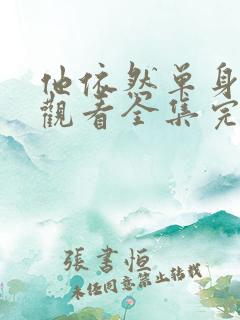 他依然单身
觀看全集完
張書恒
未经同意禁止转载